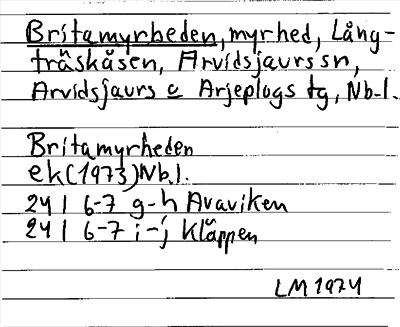 Britamyrheden, myrhed, Lång-
träskåsen, Arvidsjaurs sn,
Arvidsjaurs o Arjeplogs tg, Nb.l.
Britamyrheden
ek (1973) Nb.l.
24 I 6-7 g-h Avaviken
24 I 6-7 i-j Kläppen
LM 1974